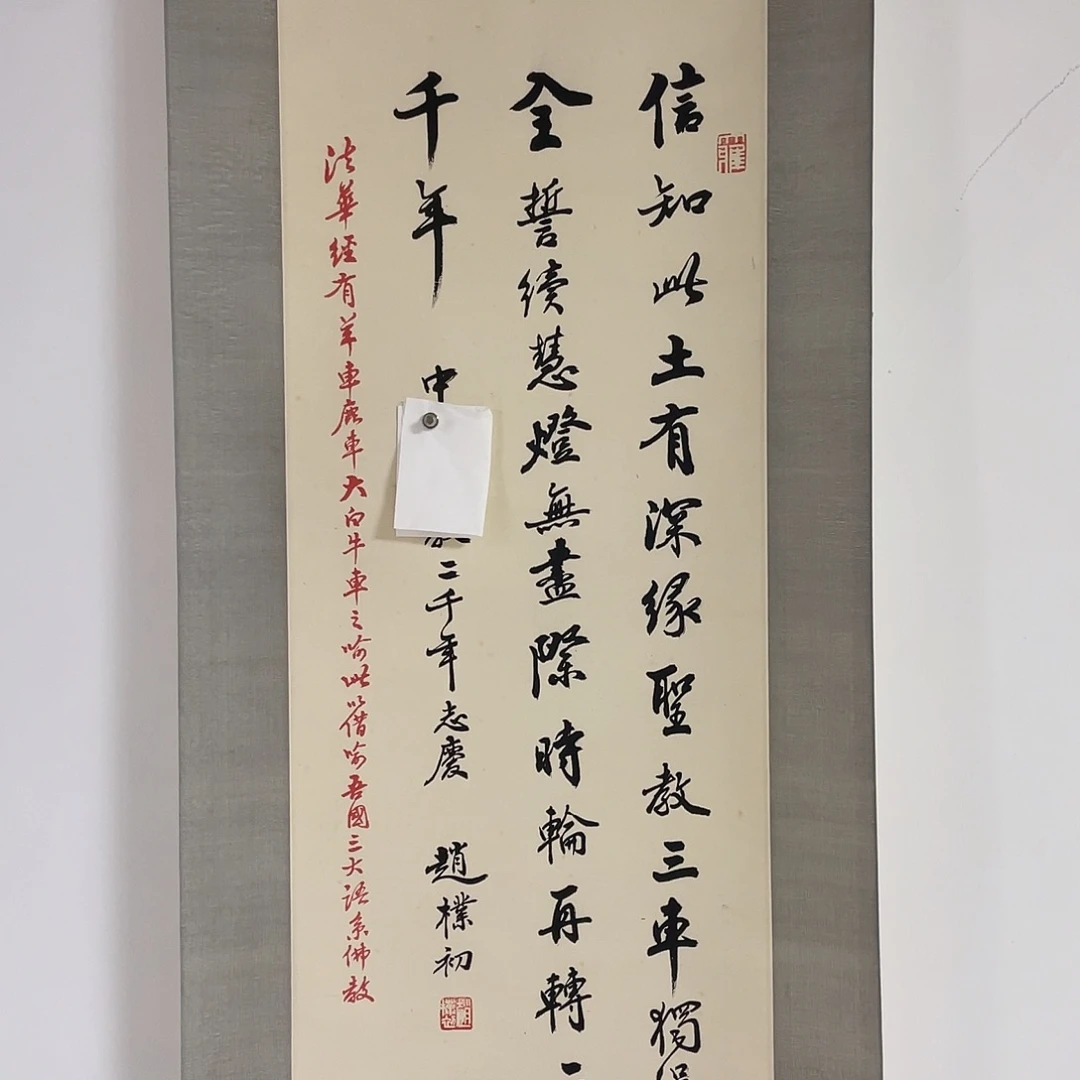 信知此土有深緣聖教三車獨得
全誓續慧燈無盡際時輪再轉二
千年
中 教二千年志慶
趙樸初
法華經有羊車鹿車大白牛車之喻此以借喻吾國三大語系佛教